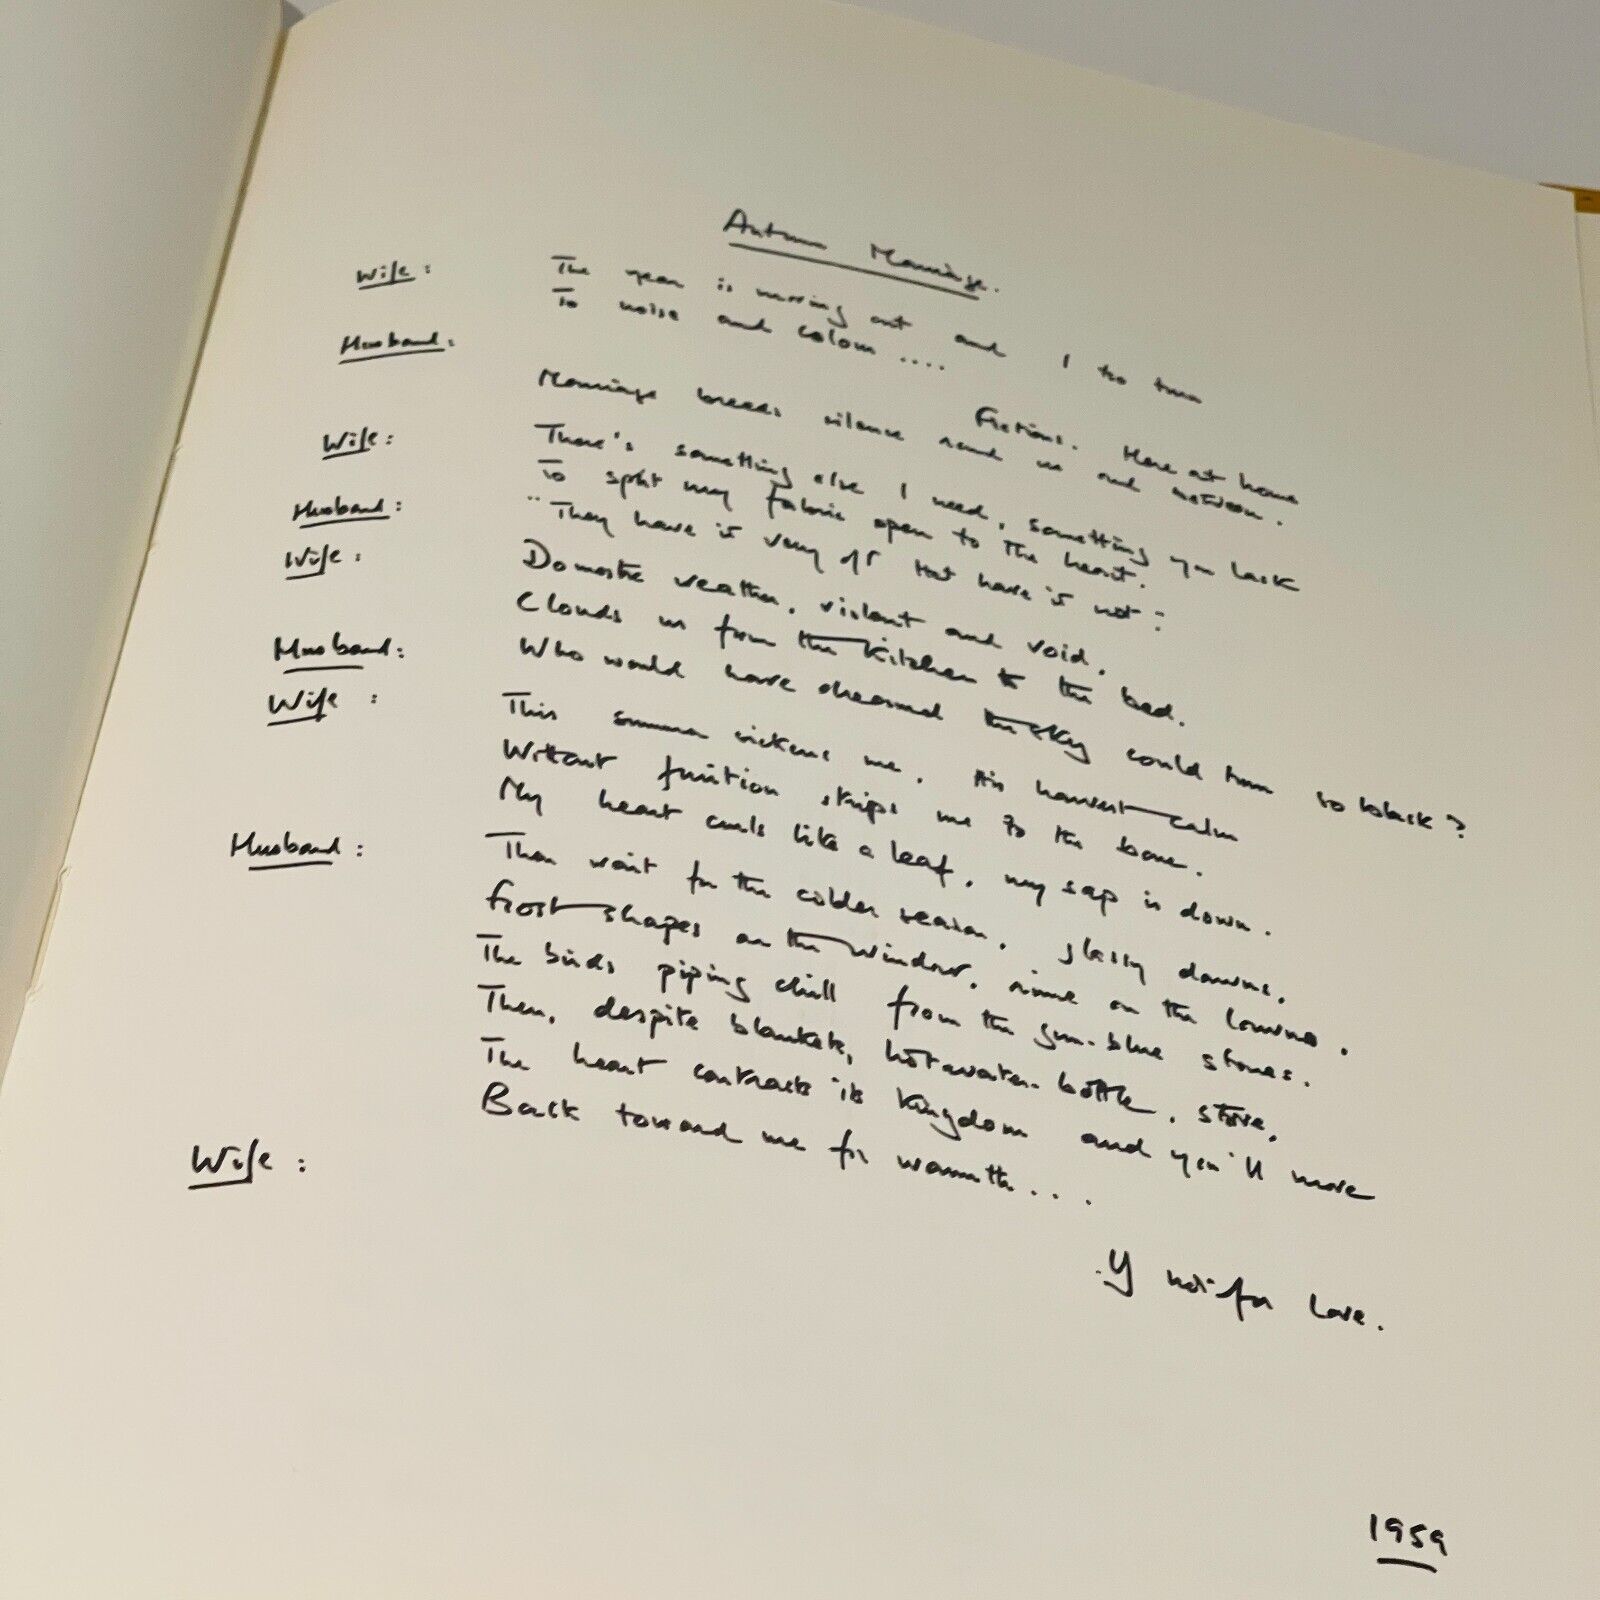 Autumn Marriage.
Wife: The year is turning out and I too turn
To noise and colour ....
Husband: Fictions. Here at home
Marriage breeds silence round us and between.
Wife: There's something else I need, something you lack
To split my fabric open to the heart.
Husband: "They have is very oft that have is not:
Wife: Domestic weather, violent and void,
Clouds us from the kitchen to the bed.
Husband: Who would have dreamed the sky could turn so black?
Wife: This summer sickens me. An harvest calm
Without fruition strips me to the bone.
My heart curls like a leaf, my sap is down.
Husband: Then wait for the colder season, glassy dawns,
Frost-shapes on the window, rime on the lawns.
The birds piping chill from the gun-blue stones.
Then, despite blankets, hot-water-bottle, stove,
The heart contracts its kingdom and you'll move
Back toward me for warmth...
Wife: .If not for love.
1959